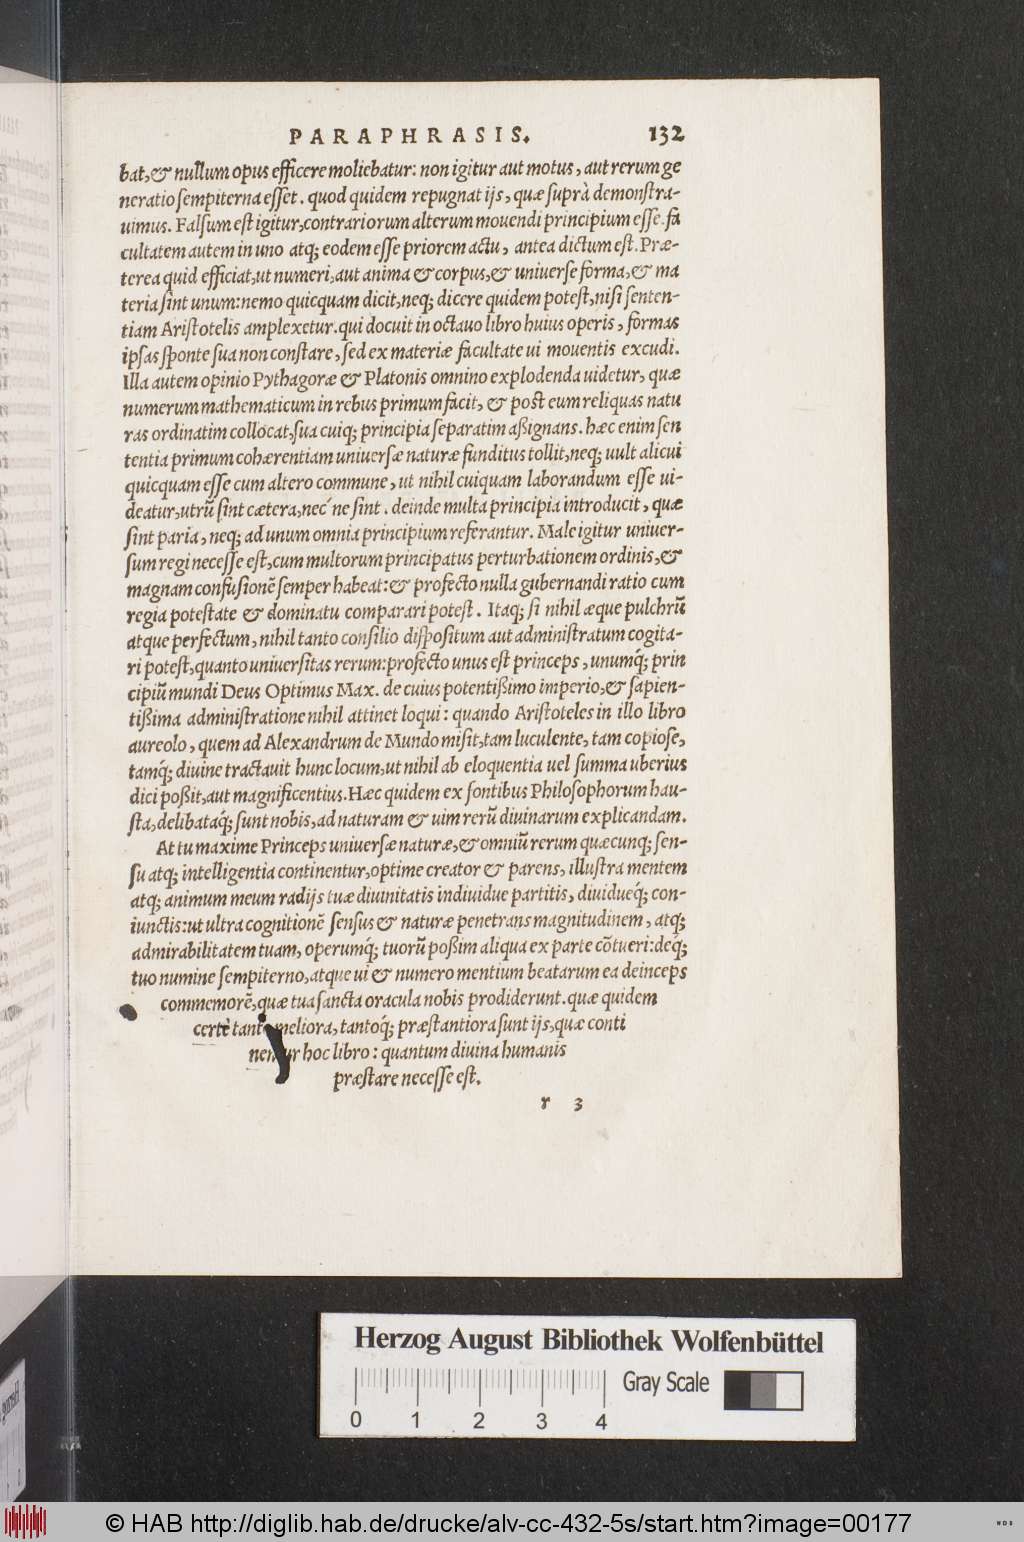 PARAPHRASIS. 132
bat, & nullum opus efficere moliebatur: non igitur aut motus, aut rerum ge
neratio sempiterna esset. quod quidem repugnat ijs, quæ suprà demonstra-
uimus. Falsum est igitur, contrariorum alterum mouendi principium esse. fa
cultatem autem in uno atq; eodem esse priorem actu, antea dictum est. Præ-
terea quid efficiat, ut numeri, aut anima & corpus, & uniuerse forma, & ma
teria sint unum: nemo quicquam dicit, neq; dicere quidem potest, nisi senten-
tiam Aristotelis amplexetur. qui docuit in octauo libro huius operis, formas
ipsas sponte sua non constare, sed ex materiæ facultate ui mouentis excudi.
Illa autem opinio Pythagoræ & Platonis omnino explodenda uidetur, quæ
numerum mathematicum in rebus primum facit, & post eum reliquas natu
ras ordinatim collocat, sua cuiq; principia separatim aßignans. hæc enim sen
tentia primum cohærentiam uniuersæ naturæ funditus tollit, neq; uult alicui
quicquam esse cum altero commune, ut nihil cuiquam laborandum esse ui-
deatur, utrũ sint cætera, nec´ ne sint. deinde multa principia introducit, quæ
sint paria, neq; ad unum omnia principium referantur. Male igitur uniuer-
sum regi necesse est, cum multorum principatus perturbationem ordinis, &
magnam confusionẽ semper habeat: & profecto nulla gubernandi ratio cum
regia potestate & dominatu comparari potest. Itaq; si nihil æque pulchrũ
atque perfectum, nihil tanto consilio dispositum aut administratum cogita-
ri potest, quanto uniuersitas rerum: profecto unus est princeps, unumq́; prin
cipiũ mundi Deus Optimus Max. de cuius potentißimo imperio, & sapien-
tißima administratione nihil attinet loqui: quando Aristoteles in illo libro
aureolo, quem ad Alexandrum de Mundo misit, tam luculente, tam copiose,
tamq́; diuine tractauit hunc locum, ut nihil ab eloquentia uel summa uberius
dici poßit, aut magnificentius. Hæc quidem ex fontibus Philosophorum hau-
sta, delibataq́; sunt nobis, ad naturam & uim rerũ diuinarum explicandam.
At tu maxime Princeps uniuersæ naturæ, & omniũ rerum quæcunq; sen-
su atq; intelligentia continentur, optime creator & parens, illustra mentem
atq; animum meum radijs tuæ diuinitatis indiuidue partitis, diuidueq́; con-
iunctis: ut ultra cognitionẽ sensus & naturæ penetrans magnitudinem, atq;
admirabilitatem tuam, operumq́; tuorũ poßim aliqua ex parte cõtueri: deq́;
tuo numine sempiterno, atque ui & numero mentium beatarum ea deinceps
commemorẽ, quæ tua sancta oracula nobis prodiderunt. quæ quidem
certè tanto meliora, tantoq́; præstantiora sunt ijs, quæ conti
nentur hoc libro: quantum diuina humanis
præstare necesse est.
r 3
Herzog August Bibliothek Wolfenbüttel
Gray Scale
0 1 2 3 4
© HAB http://diglib.hab.de/drucke/alv-cc-432-5s/start.htm?image=00177